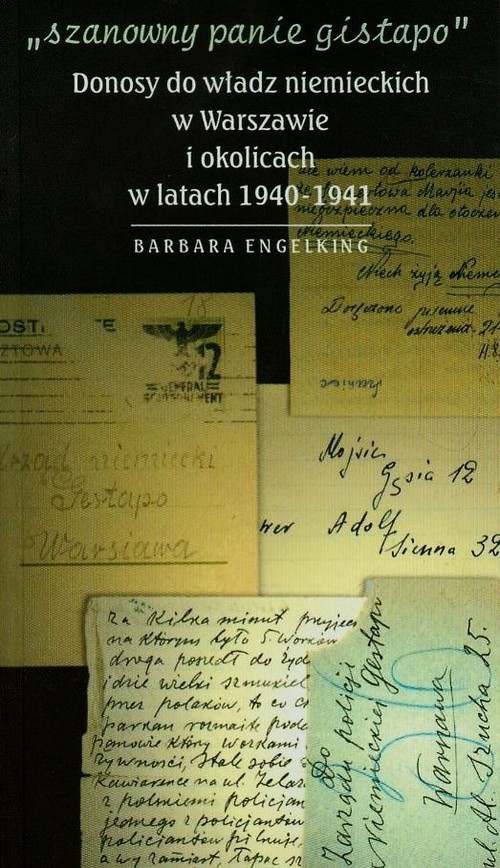 „szanowny panie gistapo”
Donosy do władz niemieckich
w Warszawie
i okolicach
w latach 1940-1941
BARBARA ENGELKING
nie wiem od koleżanki
Marja
niebezpieczna dla otocze
niemieckiego.
Niech żyją Niemc
Doręczono pisemnie
OST
E
ZTOWA
12
GENERAL
GOUVERNEMENT
Urząd niemiecki
Gestapo
Warsiawa
Mojsie
Gęsia 12
wer Adolf
Sienna 32
za kilka minut przyjec
na którym było 5. Worków
droga poszedł do żyd
idzie wielki szmukiel
przez polaków, to co
parkan rozmaite
panowie który workami
żywności, stale sobie
kawiarence na ul. Żelaz
z polskiemi policjan
jednego z policjantów
policjantów pilnuje,
a wy zamiast, łapać sz
Do
Zarządu policji
Niemieckiej Gestapo
Warszawa
Al. Szucha 25.